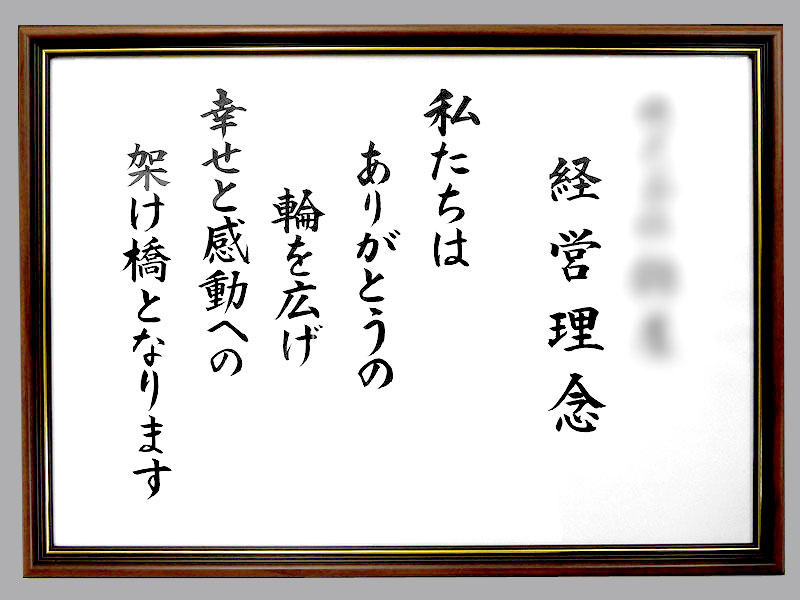 経営理念
私たちは
ありがとうの
輪を広げ
幸せと感動への
架け橋となります